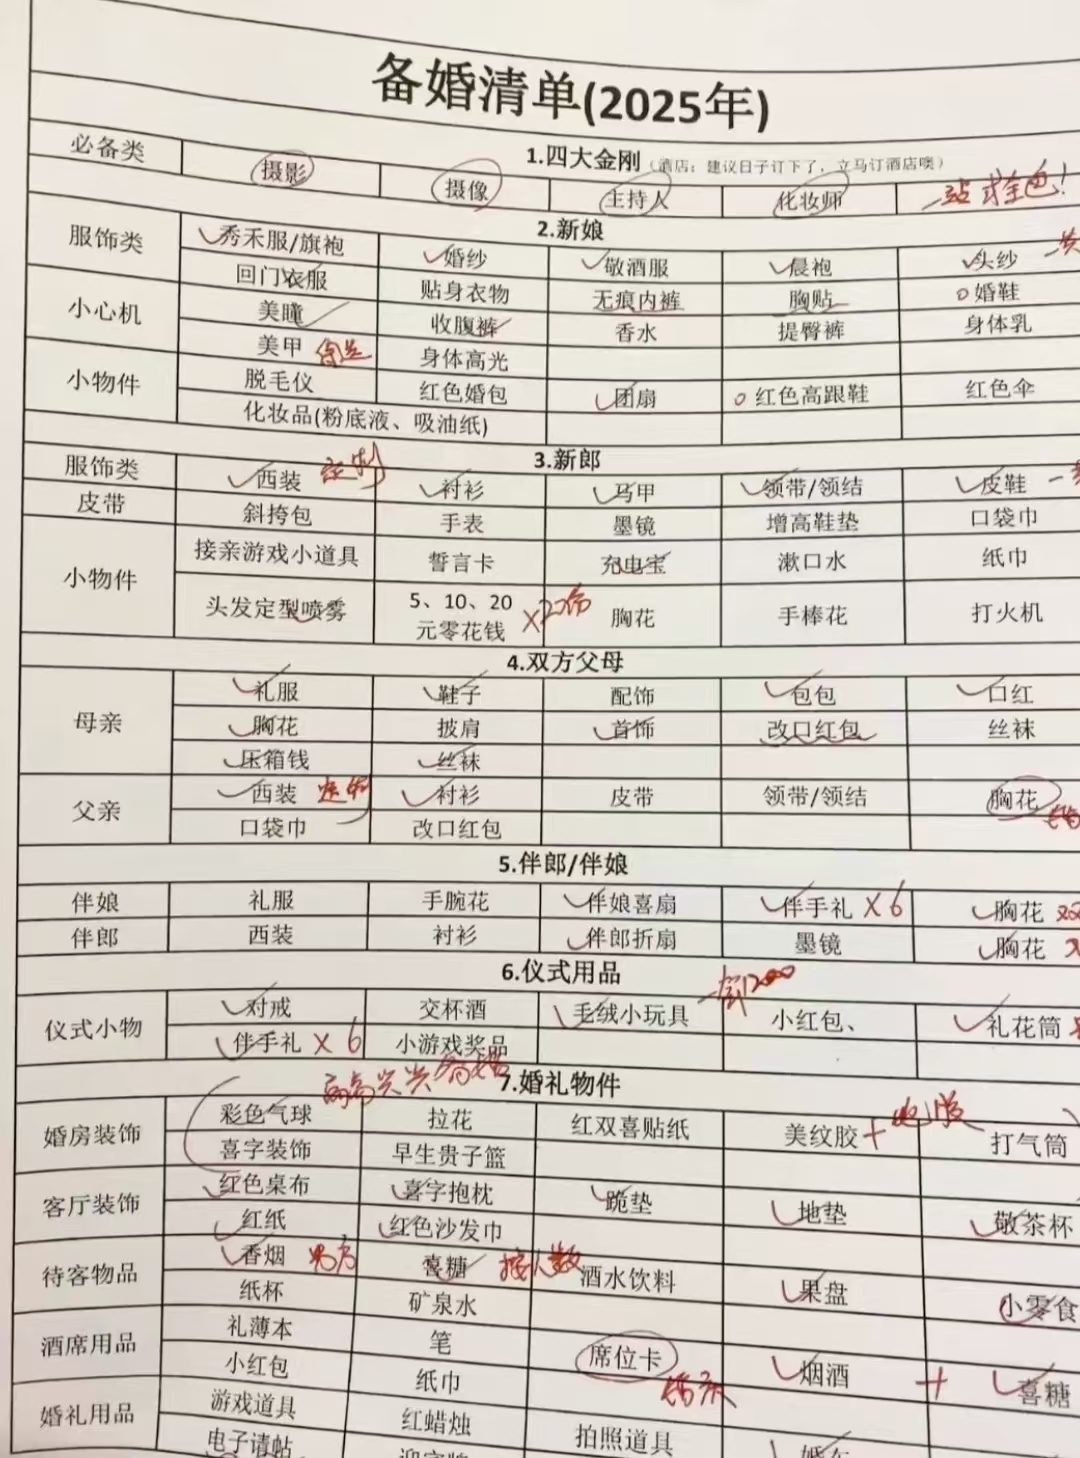 备婚清单(2025年)
1.四大金刚（酒店：建议日子订下了，立马订酒店噢）
必备类 摄影 摄像 主持人 化妆师
2.新娘
服饰类 秀禾服/旗袍 婚纱 敬酒服 晨袍 头纱
回门衣服 贴身衣物 无痕内裤 胸贴 婚鞋
小心机 美瞳 收腹裤 香水 提臀裤 身体乳
美甲 身体高光
小物件 脱毛仪 红色婚包 团扇 红色高跟鞋 红色伞
化妆品(粉底液、吸油纸)
3.新郎
服饰类 西装 定制 衬衫 马甲 领带/领结 皮鞋
皮带 斜挎包 手表 墨镜 增高鞋垫 口袋巾
小物件 接亲游戏小道具 誓言卡 充电宝 漱口水 纸巾
头发定型喷雾 5、10、20 胸花 手棒花 打火机
元零花钱
4.双方父母
母亲 礼服 鞋子 配饰 包包 口红
胸花 披肩 首饰 改口红包 丝袜
压箱钱 丝袜
父亲 西装 定制 衬衫 皮带 领带/领结 胸花
口袋巾 改口红包
5.伴郎/伴娘
伴娘 礼服 手腕花 伴娘喜扇 伴手礼 X6 胸花
伴郎 西装 衬衫 伴郎折扇 墨镜 胸花
6.仪式用品
仪式小物 对戒 交杯酒 毛绒小玩具 小红包、 礼花筒
伴手礼 X6 小游戏奖品
7.婚礼物件
婚房装饰 彩色气球 拉花 红双喜贴纸 美纹胶 打气筒
喜字装饰 早生贵子篮
客厅装饰 红色桌布 喜字抱枕 跪垫 地垫 敬茶杯
红纸 红色沙发巾
待客物品 香烟 男方 喜糖 按人数 酒水饮料 果盘 小零食
纸杯 矿泉水
酒席用品 礼薄本 笔 席位卡 烟酒 + 喜糖
小红包 纸巾
婚礼用品 游戏道具 红蜡烛 拍照道具
电子请帖